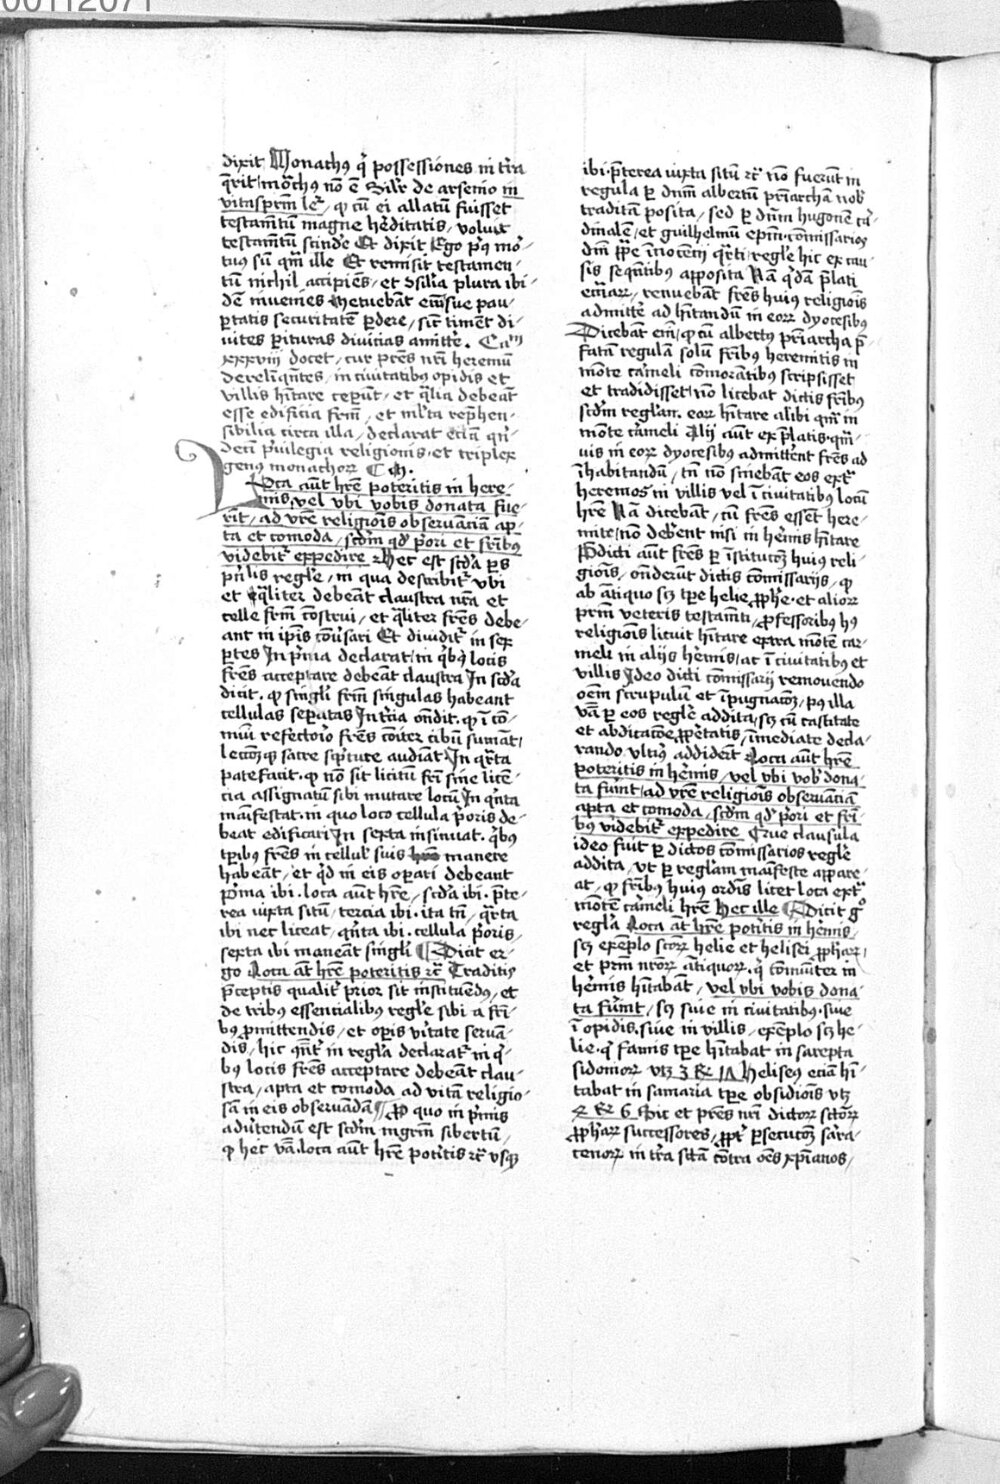 00112071
dixit Monachꝰ qͥ possessiones in tr̄a
q̄rit / mōchꝰ nō ē Silr̄ de arsenio in
vitaspr̄m leᵍ / ꝙ cū ei allatū fuisset
testam̄tū magne hereditatis / voluit
testam̄tū scinde Et dixit Ego pͥꝰ mor-
tuꝰ sū qm̄ ille Et remisit testamen-
tū nichil accipiēs / et Silia plura ibi-
dē invenies Metuebāt em̄ sue pau-
ꝑtatis securitatē ꝑdere / sic̄ timēt di-
uites ꝑituras diuicias amittē . Caᵐ
xxxviij docet / cur pr̄es nr̄i heremū
derelinq̄ntes / in ciuitatibꝰ opidis et
villis hītare ceperūt / et qͣlia debeāt
esse edificia fr̄m / et ml̄ta rep̄hen-
sibilia circa illa / declarat eciā qn̄-
dem p̄uilegia religionis et triplex
genus monachoꝝ
Loca aūt hr̄e poteritis in here-
mis / vel vbi vobis donata fue-
rīt / ad vr̄e religiōis obseruāciā ap-
ta et comoda / scdm̄ qd̓ p̄ori et fr̄ibꝰ
videbit̓ expedire Hec est scd̓a ꝑs
pn̄lis regle / in qua describit̓ vbi
et qͣliter debeāt claustra nr̄a et
celle fr̄m cōstrui / et qͣliter fr̄es debe-
ant in ip̄is cōu̓sari Et diuidit̓ in sex
ꝑtes In p̄ma declarat / in qͥbꝰ locis
fr̄es acceptare debeāt claustra In scd̓a
dicit . ꝙ singl̓i fr̄m singulas habeant
cellulas sep̄atas In tr̄cia ōndit . ꝙ ī cō-
muni refectorio fr̄es cōiter cibū sumāt /
lectōnēqꝫ sacre sc̓pture audiāt In qͣrta
patefacit . ꝙ nō sit licitū fr̄i sine licē-
cia assignatū sibi mutare locū In qͥnta
manifestat . in quo loco cellula p̄oris de-
beat edificari In sexta insinuat . qͥbꝰ
tꝑibꝰ fr̄es in cellul̓ suis manere
habeāt / et qd̓ in eis oꝑari debeant
p̄ma ibi . loca aūt hr̄e / scd̓a ibi . p̄te-
rea iuxta sitū / tercia ibi . ita tn̄ / qͣrta
ibi nec liceat / qͥnta ibi . cellula p̄oris /
sexta ibi maneāt singl̓i Dicit er-
go Loca āt hr̄e poteritis ⁊c̄ Traditis
p̄ceptis qualit̓ prior sit instituēdꝰ / et
de tribꝰ essencialibꝰ regle sibi a fr̄i-
bꝰ ꝓmittendis / et oꝑis v̓itate seruā-
dis / hic qn̄t̓ in regl̓a declarat̓ in qͥ-
bꝰ locis fr̄es acceptare debeāt clau-
stra / apta et comoda ad vitā religio-
sā in eis obseruādā Pro quo in p̄mis
adu̓tendū est scdm̄ mgr̄m sibertū /
ꝙ hec v̄ba . loca aūt hr̄e pot̓itis ⁊c̄ vsqꝫ
ibi . p̄terea iuxta sitū ⁊c̄ nō fuerūt in
regula ꝑ dnm̄ albertū pr̄iarchā nob̓
traditā posita / sed ꝑ dn̄m hugonē car-
dinalē / et guilhelmū ep̄m . cōmissarios
dn̄i pp̄e īnocencij qͣrti / regl̓e hic ex cau-
sis seqn̄tibus apposita Nā qͥdā p̄lati
renuebāt fr̄es huiꝰ religiōis
admittē ad hītandū in eoꝝ dyocesibꝰ
Dicebāt em̄ / ꝙ cū albertꝰ pr̄iarcha p̄-
fatā regulā solū fr̄ibꝰ heremitis in
mōte carmeli cōmorātibꝰ scripsisset
et tradidisset / nō licebat dictis fr̄ibꝰ
scdm̄ regl̓am . eoꝝ hītare alibi qm̄ in
mōte carmeli Alij aūt ex p̄latis . qm̄-
uis in eoꝝ dyocesibꝰ admitterēt fr̄es ad
īhabitandū / tn̄ nō sinebāt eos extͣ
heremos in villis vel ī ciuitatibꝰ locū
hr̄e Nā dicebāt / cū fr̄es essēt here-
mite / nō deberent nisi in heremis hītare
Predicti aūt fr̄es ꝑ īstitucōꝫ huiꝰ reli-
giōis / ōnderūt dictis cōmissarijs / ꝙ
ab ātiquo scꝫ tꝑe helie ꝓphe . et alioꝝ
pr̄m veteris testam̄ti / ꝓfessoribꝰ hꝰ
religiōis licuit hītare extra mōtē car-
meli in alijs heremis / ac ī ciuitatibꝰ et
villis Ideo dicti cōmissarij remouendo
oēm scrupulū et īpugnacōꝫ / pꝰ illa
v̄ba ꝑ eos regl̓e addita / scꝫ cū castitate
et abdicacōe ꝓpetatis / īmediate decla-
rando vltiꝰ addiderūt Loca aūt hr̄e
poteritis in heremis / vel vbi vob̓ dona-
ta fuerint / ad vr̄e religiōis obseruāciā
apta et comoda / scdm̄ qd̓ p̄ori et fr̄i-
bꝰ videbit̓ expedire Que clausula
ideo fuit ꝑ dictos cōmissarios regl̓e
addita / vt ꝑ regl̓am manifeste appare-
at / ꝙ fr̄ibꝰ huiꝰ ordīs licet loca extͣ
mōtem carmeli hr̄e Hec ille Dicit gͦ
regl̓a Loca āt hr̄e pot̓itis in heremis /
scꝫ exēplo sc̄oꝝ helie et helisei ꝓphaꝝ /
et pr̄m nr̄oꝝ ātiquoꝝ . qͥ cōmunit̓ in
heremis hītabāt / vel vbi vobis dona-
ta fuerint / scꝫ siue in ciuitatibꝰ . siue
ī opidis . siue in villis / exēplo scꝫ he-
lie . qͥ famis tꝑe hītabat in sarepta
sidonioꝝ vtꝫ 3 Rē 17 Heliseꝰ eciā hī-
tabat in samaria tꝑe obsidiōis vtꝫ
4 Rē 6 Sic et pr̄es nr̄i dictoꝝ sc̄oꝝ
ꝓphaꝝ successores / ꝓpt̓ ꝑsecucōꝫ sarra-
cenoꝝ in tr̄a scā cōtra oēs xp̄ianos /